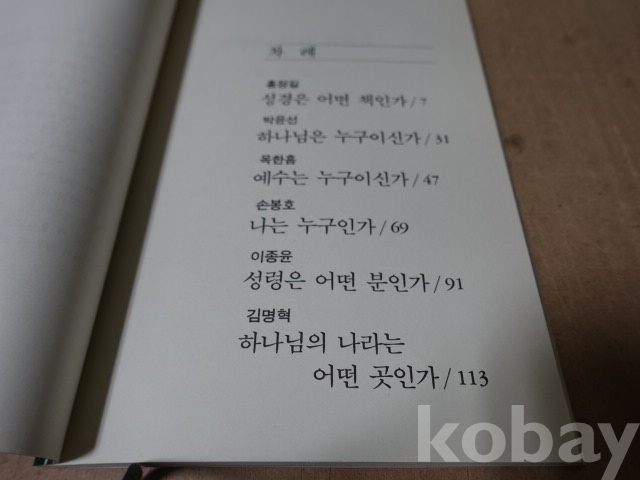 차 례
홍정길
성경은 어떤 책인가/7
박윤선
하나님은 누구이신가/31
옥한흠
예수는 누구이신가/47
손봉호
나는 누구인가/69
이종윤
성령은 어떤 분인가/91
김명혁
하나님의 나라는
어떤 곳인가/113
kobay